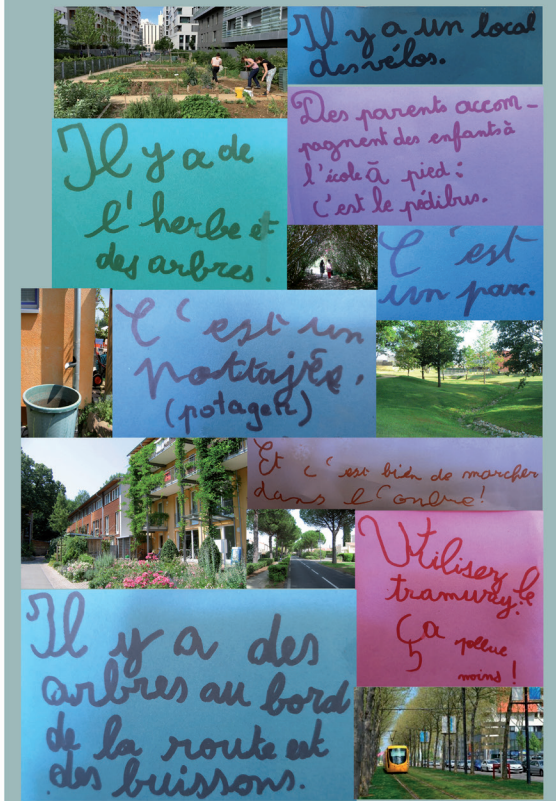 Il y a un local
des vélos.
Des parents accom-
pagnent des enfants à
l'école à pied :
c'est le pédibus.
Il y a de
l'herbe et
des arbres.
C'est
un parc.
C'est un
pottajée.
(potager)
Et c'est bien de marcher
dans l'ombre !
Utilisez le
tramway !
Ça pollue
moins !
Il y a des
arbres au bord
de la route est
des buissons.